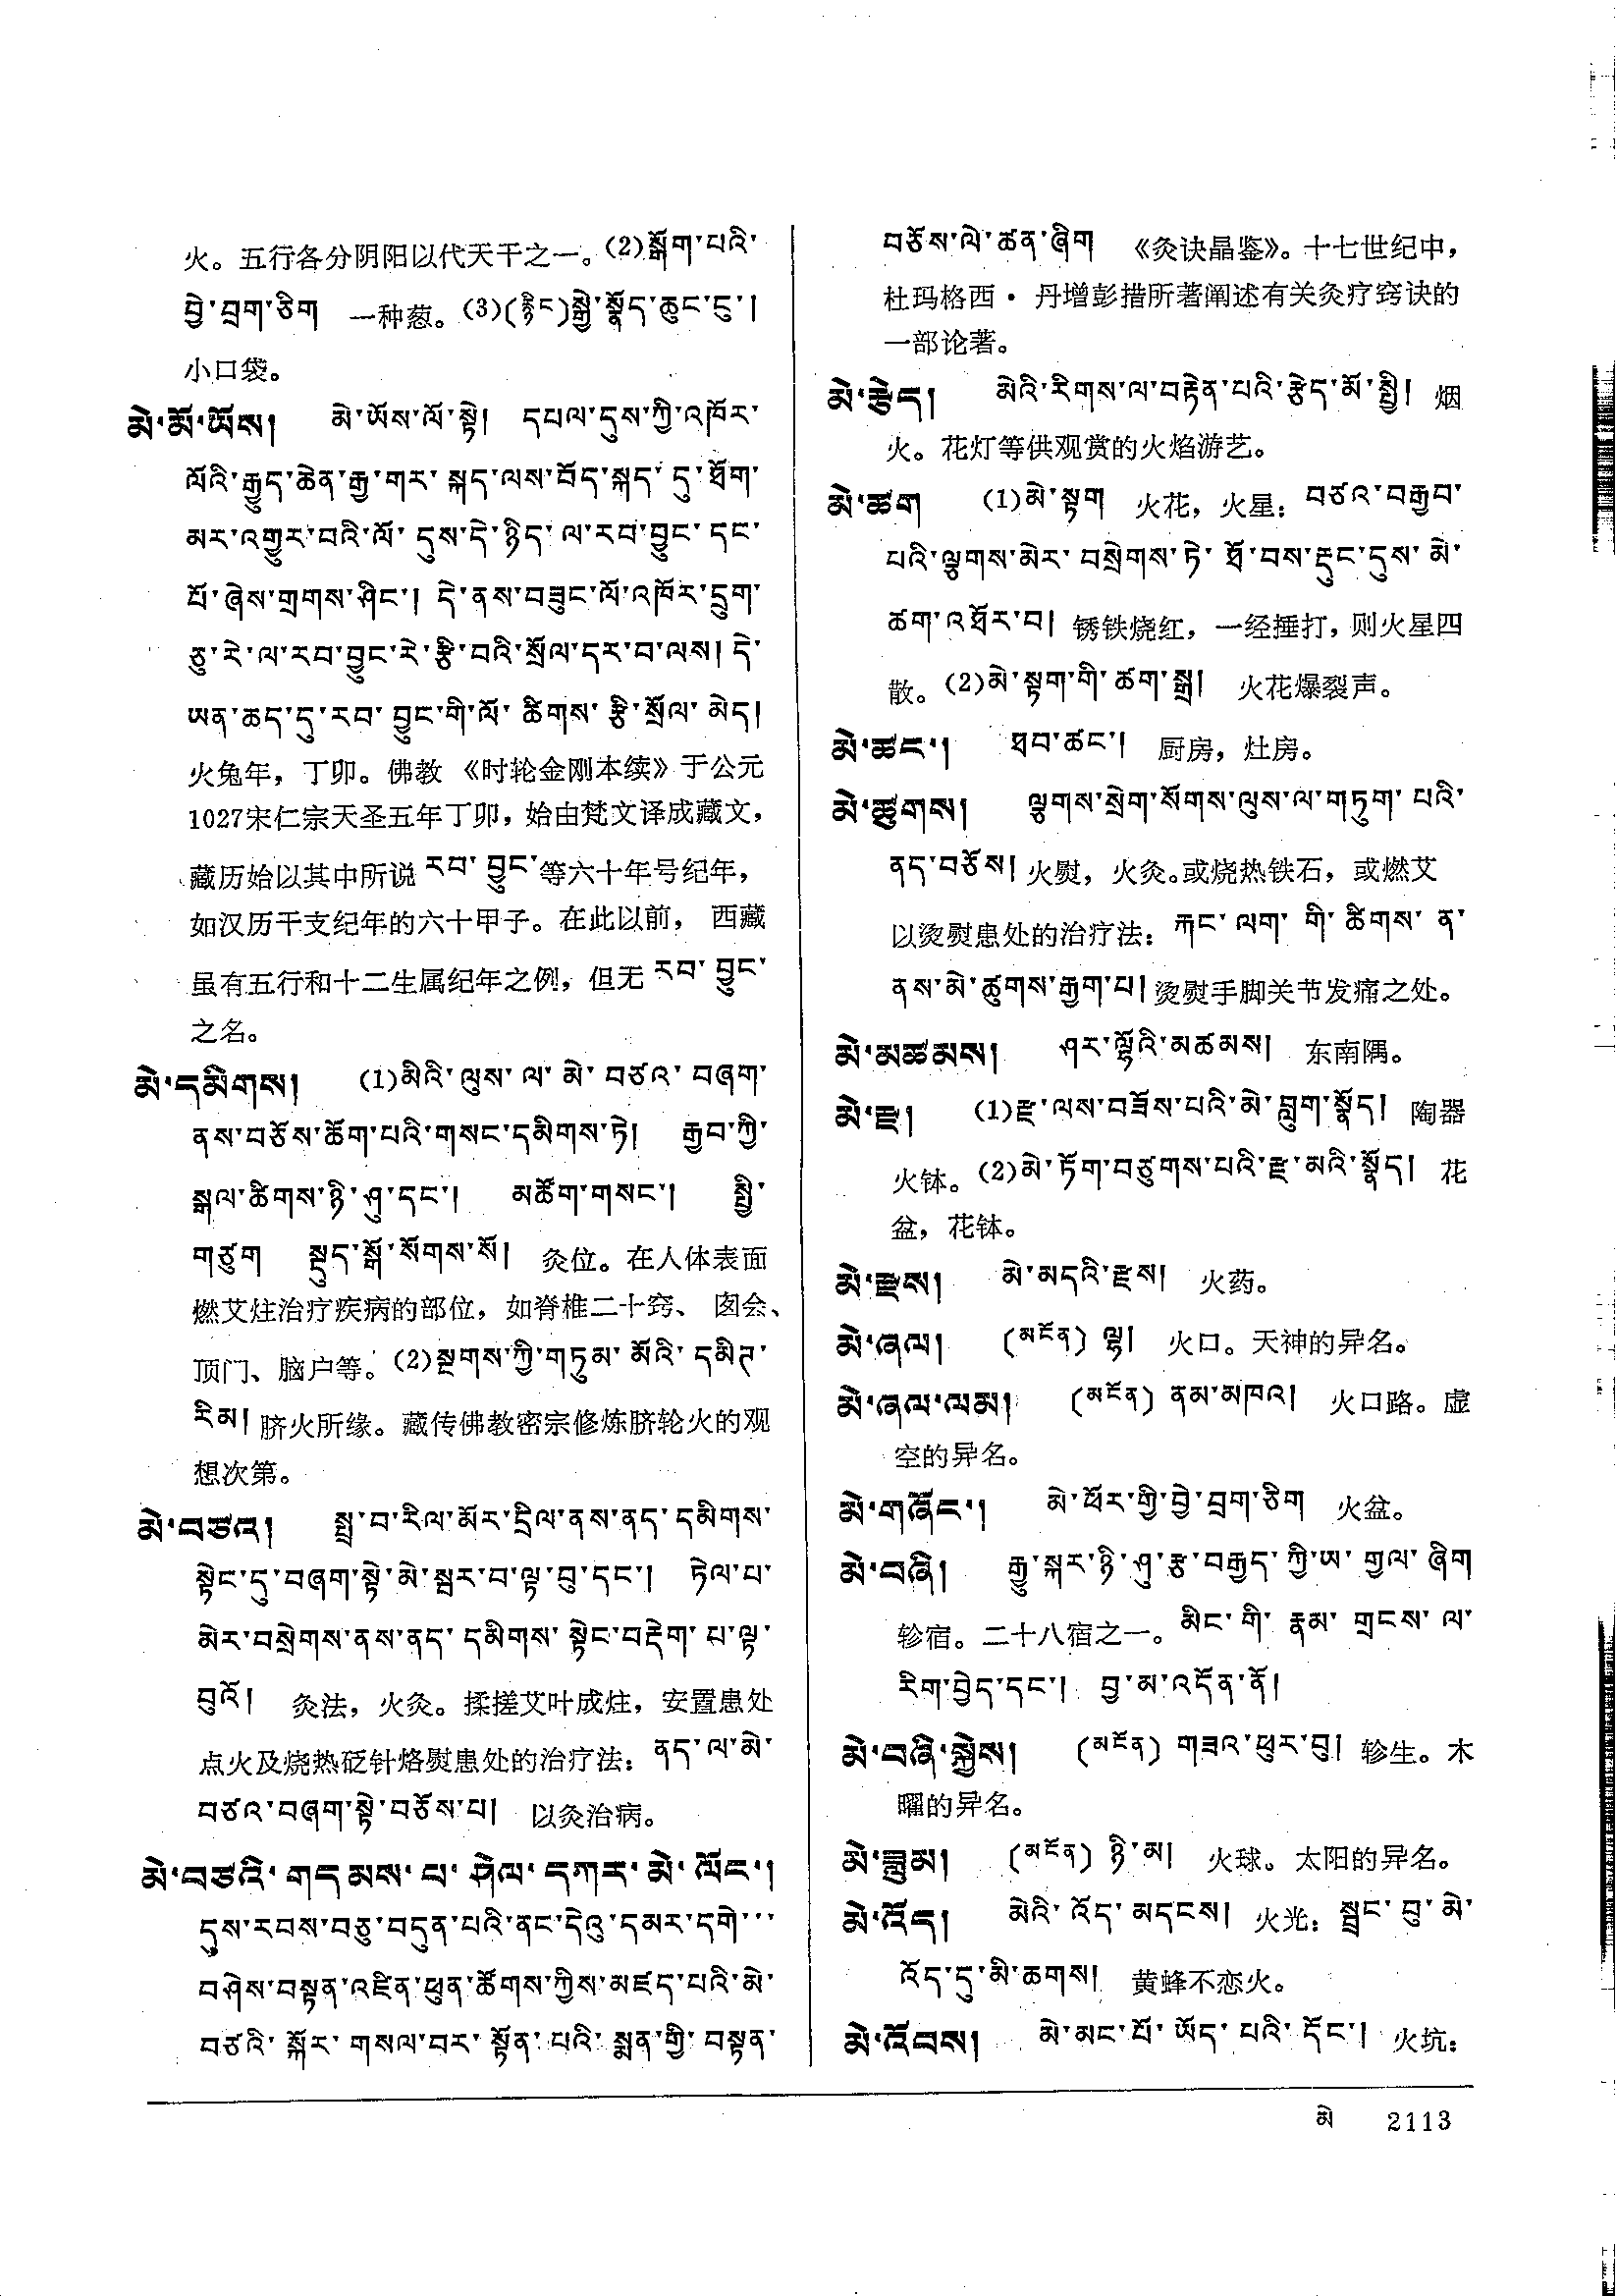 火。五行各分阴阳以代天干之一。(2)སྒོག་པའི་
བྱེ་བྲག་ཅིག 一种葱。(3)(རྙིང)སྒྱེ་སྣོད་ཆུང་ངུ་།
小口袋。
མེ་མོ་ཡོས། མེ་ཡོས་ལོ་སྟེ། དཔལ་དུས་ཀྱི་འཁོར་
ལོའི་རྒྱུད་ཆེན་རྒྱ་གར་སྐད་ལས་བོད་སྐད་དུ་ཐོག་
མར་འགྱུར་བའི་ལོ་དུས་དེ་ཉིད་ལ་རབ་བྱུང་དང་
པོ་ཞེས་གྲགས་ཤིང་། དེ་ནས་བཟུང་ལོ་འཁོར་དྲུག་
ཅུ་རེ་ལ་རབ་བྱུང་རེ་རྩི་བའི་སྲོལ་དར་བ་ལས། དེ་
ཡན་ཆད་དུ་རབ་བྱུང་གི་ལོ་ཚིགས་རྩི་སྲོལ་མེད།
火兔年，丁卯。佛教《时轮金刚本续》于公元
1027宋仁宗天圣五年丁卯，始由梵文译成藏文，
藏历始以其中所说རབ་བྱུང་等六十年号纪年，
如汉历干支纪年的六十甲子。在此以前，西藏
虽有五行和十二生属纪年之例，但无རབ་བྱུང་
之名。
མེ་དམིགས། (1)མིའི་ལུས་ལ་མེ་བཙའ་བཞག་
ནས་བཅོས་ཆོག་པའི་གསང་དམིགས་ཏེ། རྒྱབ་ཀྱི་
སྒལ་ཚིགས་ཉི་ཤུ་དང་། མཚོག་གསང་། སྤྱི་
གཙུག སྡུད་སྒོ་སོགས་སོ། 灸位。在人体表面
燃艾炷治疗疾病的部位，如脊椎二十窍、囟会、
顶门、脑户等。(2)སྔགས་ཀྱི་གཏུམ་མོའི་དམིཊ་
རིམ། 脐火所缘。藏传佛教密宗修炼脐轮火的观
想次第。
མེ་བཙའ། སྤྲ་བ་རིལ་མོར་དྲིལ་ནས་ནད་དམིགས་
སྟེང་དུ་བཞག་སྟེ་མེ་སྦར་བ་ལྟ་བུ་དང་། ཏེལ་པ་
མེར་བསྲེགས་ནས་ནད་དམིགས་སྟེང་བརྡེག་པ་ལྟ་
བུའོ། 灸法，火灸。揉搓艾叶成炷，安置患处
点火及烧热砭针烙熨患处的治疗法：ནད་ལ་མེ་
བཙའ་བཞག་སྟེ་བཅོས་པ། 以灸治病。
མེ་བཙའི་གདམས་པ་ཤེལ་དཀར་མེ་ལོང་།
དུས་རབས་བཅུ་བདུན་པའི་ནང་དེའུ་དམར་དགེ་་་
བཤེས་བསྟན་འཛིན་ཕུན་ཚོགས་ཀྱིས་མཛད་པའི་མེ་
བཙའི་སྐོར་གསལ་བར་སྟོན་པའི་སྨན་གྱི་བསྟན་
བཅོས་ལེ་ཚན་ཞིག 《灸诀晶鉴》。十七世纪中，
杜玛格西·丹增彭措所著阐述有关灸疗窍诀的
一部论著。
མེ་རྩེད། མེའི་རིགས་ལ་བརྟེན་པའི་རྩེད་མོ་སྤྱི། 烟
火。花灯等供观赏的火焰游艺。
མེ་ཚག (1)མེ་སྟག 火花，火星：བཙའ་བརྒྱབ་
པའི་ལྕགས་མེར་བསྲེགས་ཏེ་ཐོ་བས་རྡུང་དུས་མེ་
ཚག་འཐོར་བ། 锈铁烧红，一经捶打，则火星四
散。(2)མེ་སྟག་གི་ཚག་སྒྲ། 火花爆裂声。
མེ་ཚང་། ཐབ་ཚང་། 厨房，灶房。
མེ་ཚུགས། ལྕགས་སྲེག་སོགས་ལུས་ལ་གཏུག་པའི་
ནད་བཅོས། 火熨，火灸。或烧热铁石，或燃艾
以烫熨患处的治疗法：རྐང་ལག་གི་ཚིགས་ན་
ནས་མེ་ཚུགས་རྒྱག་པ། 烫熨手脚关节发痛之处。
མེ་མཚམས། ཤར་ལྷོའི་མཚམས། 东南隅。
མེ་རྫ། (1)རྫ་ལས་བཟོས་པའི་མེ་བླུག་སྣོད། 陶器
火钵。(2)མེ་ཏོག་བཙུགས་པའི་རྫ་མའི་སྣོད། 花
盆，花钵。
མེ་རྫས། མེ་མདའི་རྫས། 火药。
མེ་ཞལ། (མངོན) ལྷ། 火口。天神的异名。
མེ་ཞལ་ལམ། (མངོན) ནམ་མཁའ། 火口路。虚
空的异名。
མེ་གཞོང་། མེ་ཕོར་གྱི་བྱེ་བྲག་ཅིག 火盆。
མེ་བཞི། རྒྱུ་སྐར་ཉི་ཤུ་རྩ་བརྒྱད་ཀྱི་ཡ་གྱལ་ཞིག
轸宿。二十八宿之一。མིང་གི་རྣམ་གྲངས་ལ་
རིག་བྱེད་དང་། བྱ་མ་འདོན་ནོ།
མེ་བཞི་སྐྱེས། (མངོན) གཟའ་ཕུར་བུ། 轸生。木
曜的异名。
མེ་ཟླུམ། (མངོན) ཉི་མ། 火球。太阳的异名。
མེ་འོད། མེའི་འོད་མདངས། 火光：སྦྲང་བུ་མེ་
འོད་དུ་མི་ཆགས། 黄蜂不恋火。
མེ་འོབས། མེ་མང་པོ་ཡོད་པའི་དོང་། 火坑：
མེ 2113